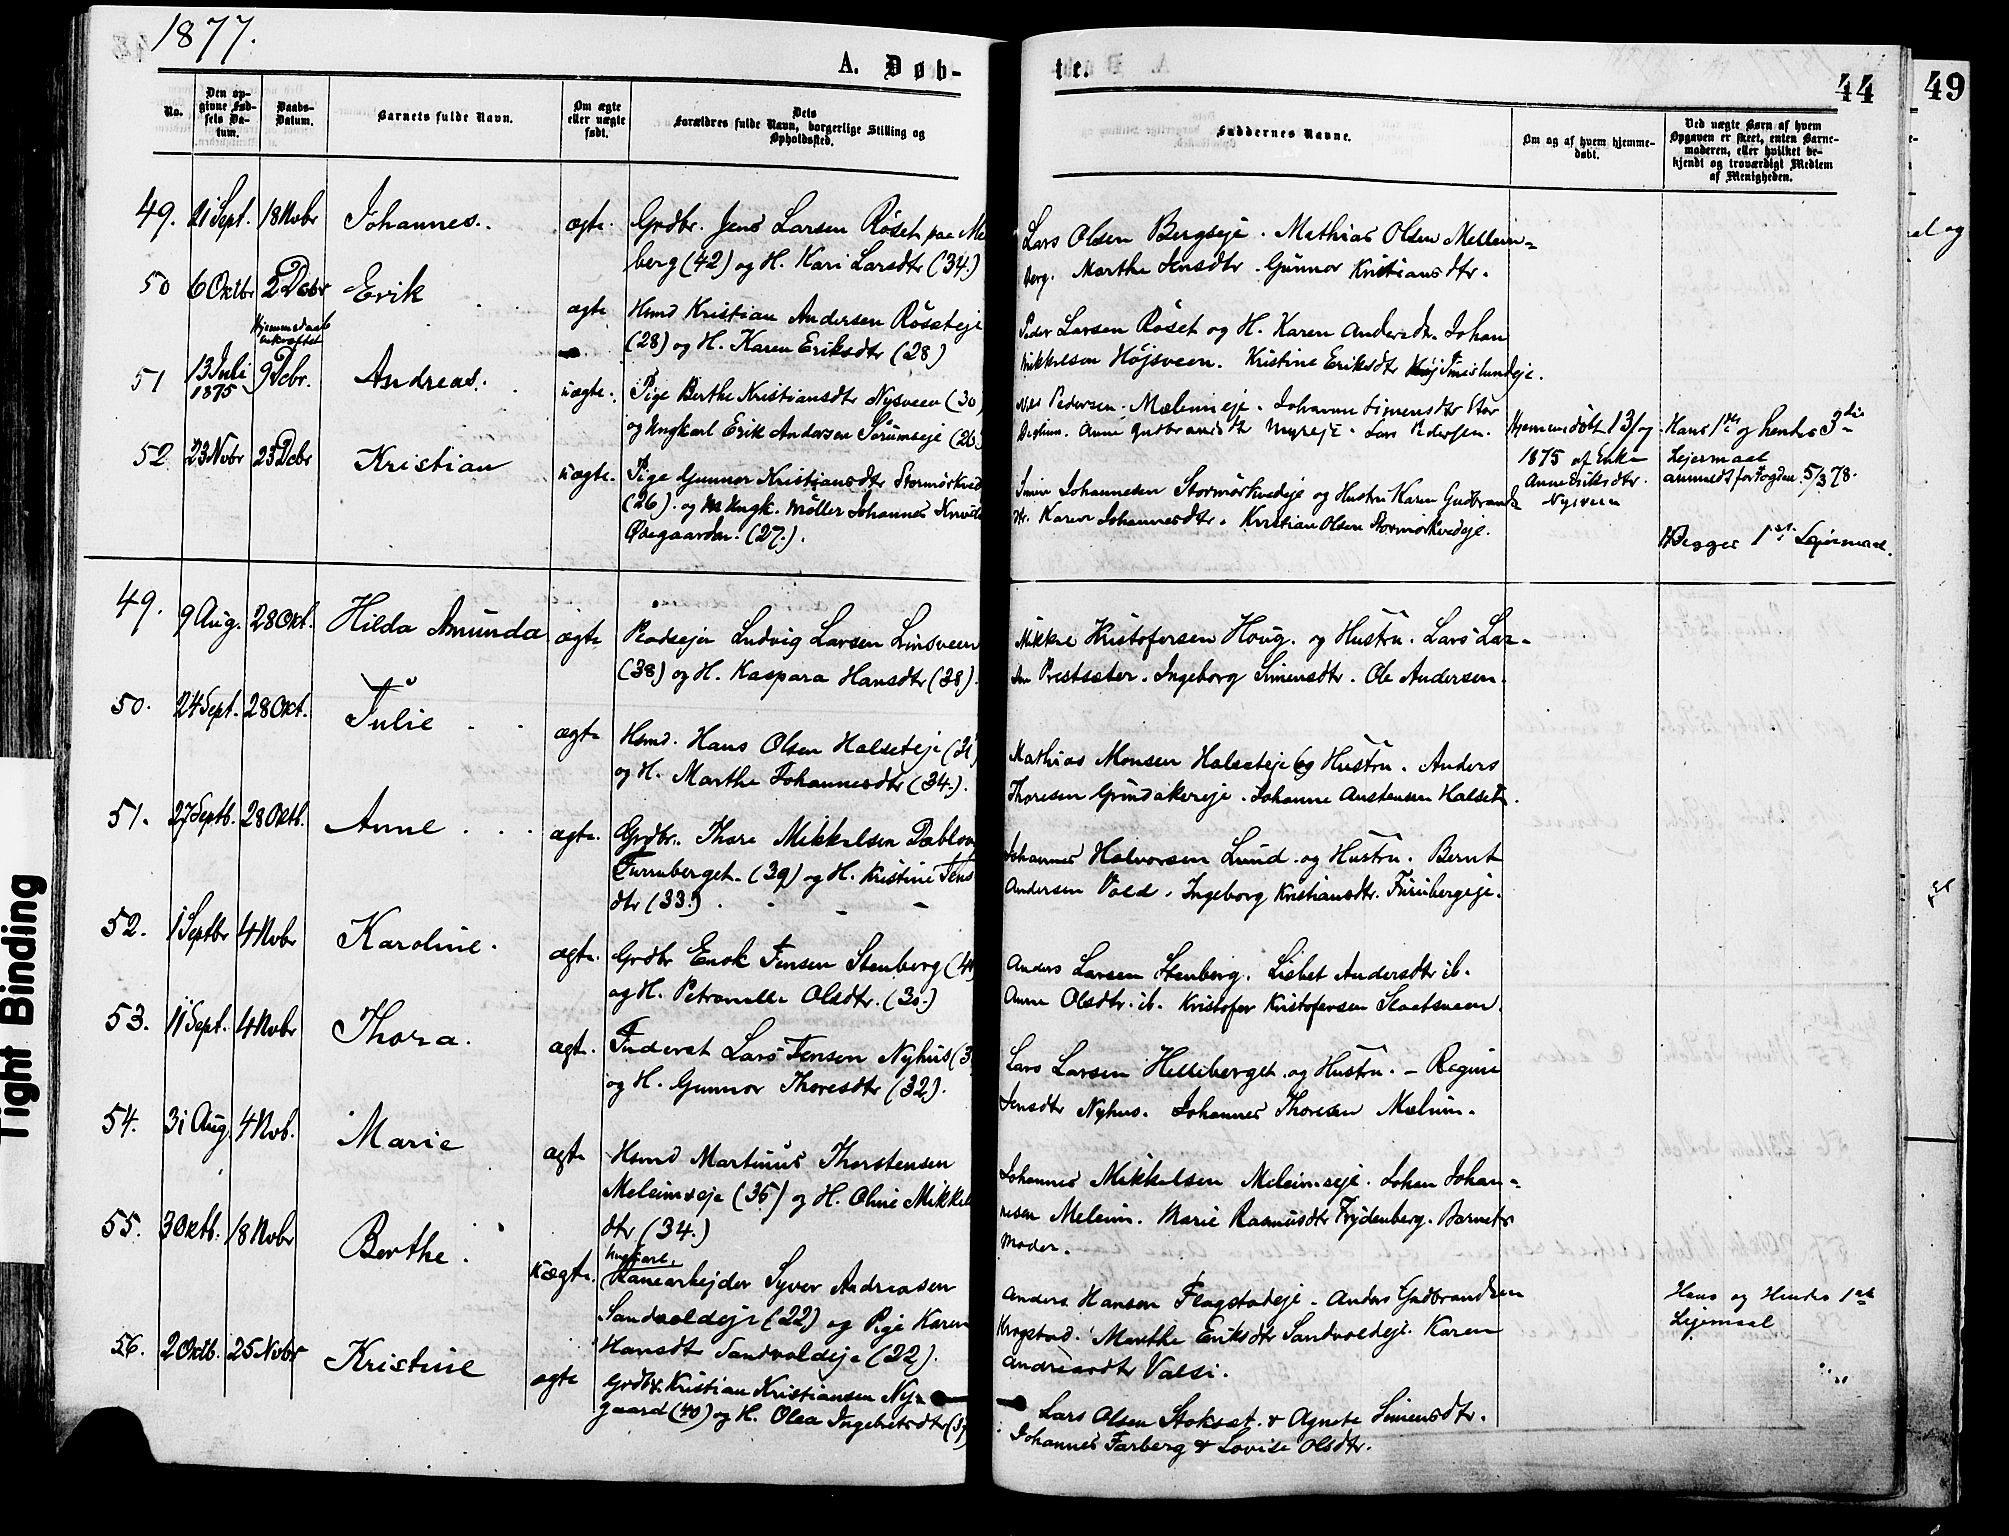 1877.
A. Døb-
te.
44
49
No.
Den op-
givne Fød-
sels Da-
tum.
Daabs-
Datum.
Barnets fulde Navn.
Om ægte
eller uægte
født.
Dets
Forældres fulde Navn, borgerlige Stilling og
Opholdssted.
Faddernes Navne.
Om og af hvem hjemme-
døbt.
Ved uægte Børn af hvem
Opgaven er skeet, enten Barne-
moderen, eller hvilket be-
kjendt og troværdigt Medlem
af Menigheden.
49. 21 Sept. 18 Nobr Johannes. ægte. Grdbr. Jens Larsen Røset paa Me
berg (42) og H. Kari Larsdtr (34.)
Lars Olsen Bergseje. Mathias Olsen Mellem-
berg. Marthe Jensdtr. Gunnor Kristiansdtr.
50 6 Oktbr 2 Decbr Erik ægte Hsmd Kristian Andersen Røseteje
(28) og H. Karen Eriksdtr (28)
Hjemmedaab
bekræftet
Peder Larsen Røset og H. Karen Andersdtr. Johan
Mikkelsen Højsveen. Kristine Eriksdtr Smeslundeje.
51 13 Juli
1875 9 Debr. Andreas. uægte. Pige Berthe Kristiansdtr Nysveen (30)
og Ungkarl Erik Andersen Sørumseje (26.)
Nils Pedersen Mæhlumeje. Johanne Simensdtr Stor
Anne Gudbrandsdtr Myreje. Lars Pedersen.
Hjemmedøbt 13/9
1875 af Enke
Anne Eriksdtr.
Nysveen
Hans 1ste og hendes 3die
Lejermaal
anmeldt for Fogden 5/3 78.
52 23 Nobr 25 Debr Kristian uægte. Pige Gunnor Kristiansdtr Stormørkved
(26). og Ungk. Møller Johannes
Ødegaarden. (27.).
Simen Johannesen Stormørkvedeje og Hustru Karen Gudbrands
dtr. Karen Johannesdtr. Kristian Olsen Stormørkvedeje.
Begges 1ste Lejermaal.
49. 9 Aug. 28 Okt. Hilda Amunda ægte Pladsejer Ludvig Larsen Linsveen
(38) og H. Kaspara Hansdtr (38).
Mikkel Kristofersen Houg. og Hustru. Lars Lar-
sen Prestsæter. Ingeborg Simensdtr. Ole Andersen.
50. 24 Sept. 28 Okt. Julie ægte Hsmd. Hans Olsen Halseteje (31)
og H. Marthe Johannesdtr (34.).
Mathias Monsen Halseteje og Hustru. Anders
Thoresen Grindakereje. Johanne Austensen Halset.
51. 27 Septb. 28 Oktb. Anne ægte. Grdbr. Thore Mikkelsen Dablov
Furruberget. (39) og H. Kristine Jens
dtr (33.)
Johannes Halvorsen Lund og Hustru. Bernt
Andersen Vold. Ingeborg Kristiansdtr. Furubergeje.
52. 1 Septbr 4 Nobr Karoline. ægte. Grdbr Enok Jensen Stenberg (4
og H. Petronelle Olsdtr. (30.)
Anders Larsen Stenberg. Lisbet Andersdtr ib.
Anne Olsdtr. ib. Kristofer Kristofersen Slaatsveen.
53. 11 Sept. 4 Nobr Thora. ægt. Inderst Lars Jensen Nyhus (3
og H. Gunnor Thoresdtr (32).
Lars Larsen Helleberget og Hustru. - Regine
Jensdtr Nyhus. Johannes Thoresen Mælum.
54. 31 Aug. 4 Nob. Marie ægte Hsmd Martinus Thorstensen
Meleimseje (35) og H. Oline Mikkels
dtr (34.)
Johannes Mikkelsen Meleimseje. Johan Johan-
nesen Meleim. Marie Rasmusdtr Frydenberg. Barnets
Moder.
55. 3 Oktb. 18 Nobr Berthe. uægte. Ungkarl.
Banearbejder Syver Andreasen
Sandvoldeje (22) og Pige Karen
Hansdtr Sandvoldeje (22).
Anders Hansen Flagstadeje. Anders Gudbrandsen
Krogstad. Marthe Eriksdtr Sandvoldeje. Karen
Andreasdtr Valsi.
Hans og Hendes 1ste
Lejermaal
56. 2 Oktb. 25 Nobr Kristine ægte Grdbr. Kristian Kristiansen Ny-
gaard (40) og H. Olea Ingebretsdtr (3
Lars Olsen Stokset. & Agnete Simensdtr.
Johannes Farberg & Lovise Olsdtr.
Tight Binding